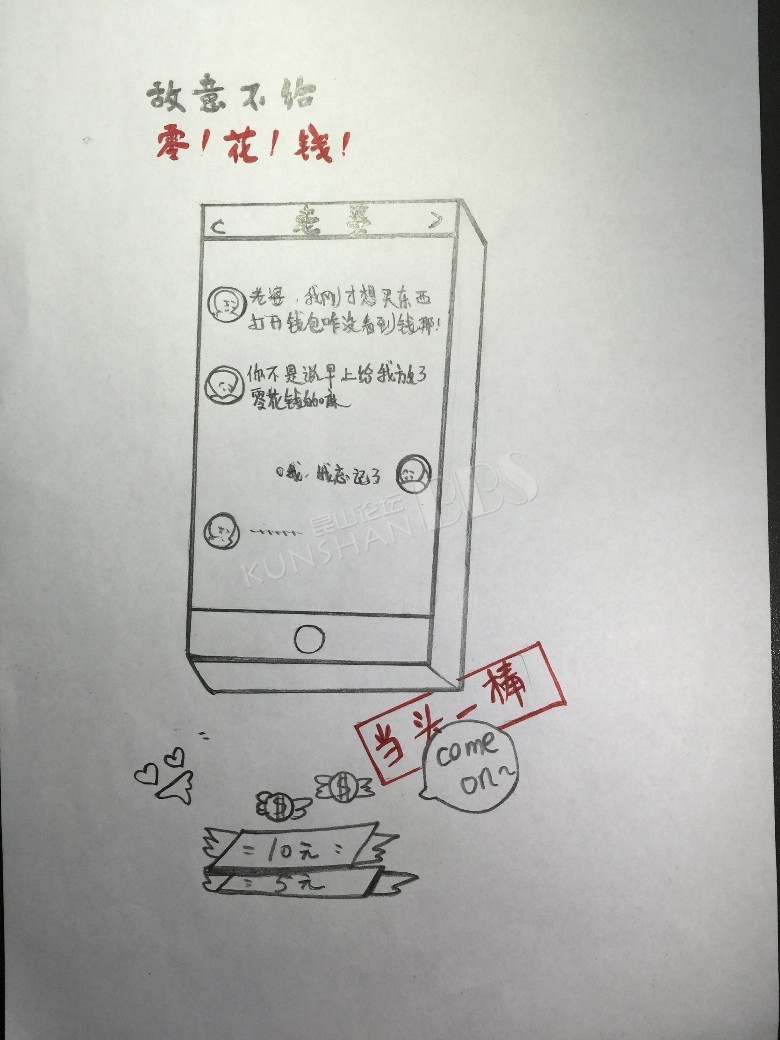 敌意不给
零！花！钱！
< 老婆 >
老婆，我刚才想买东西
打开钱包咋没看到钱那！
你不是说早上给我放了
零花钱的嘛
哦，我忘记了
………
昆山论坛
KUNSHAN BBS
当头一棒
come
on~
$
$
= 10元 =
= 5元